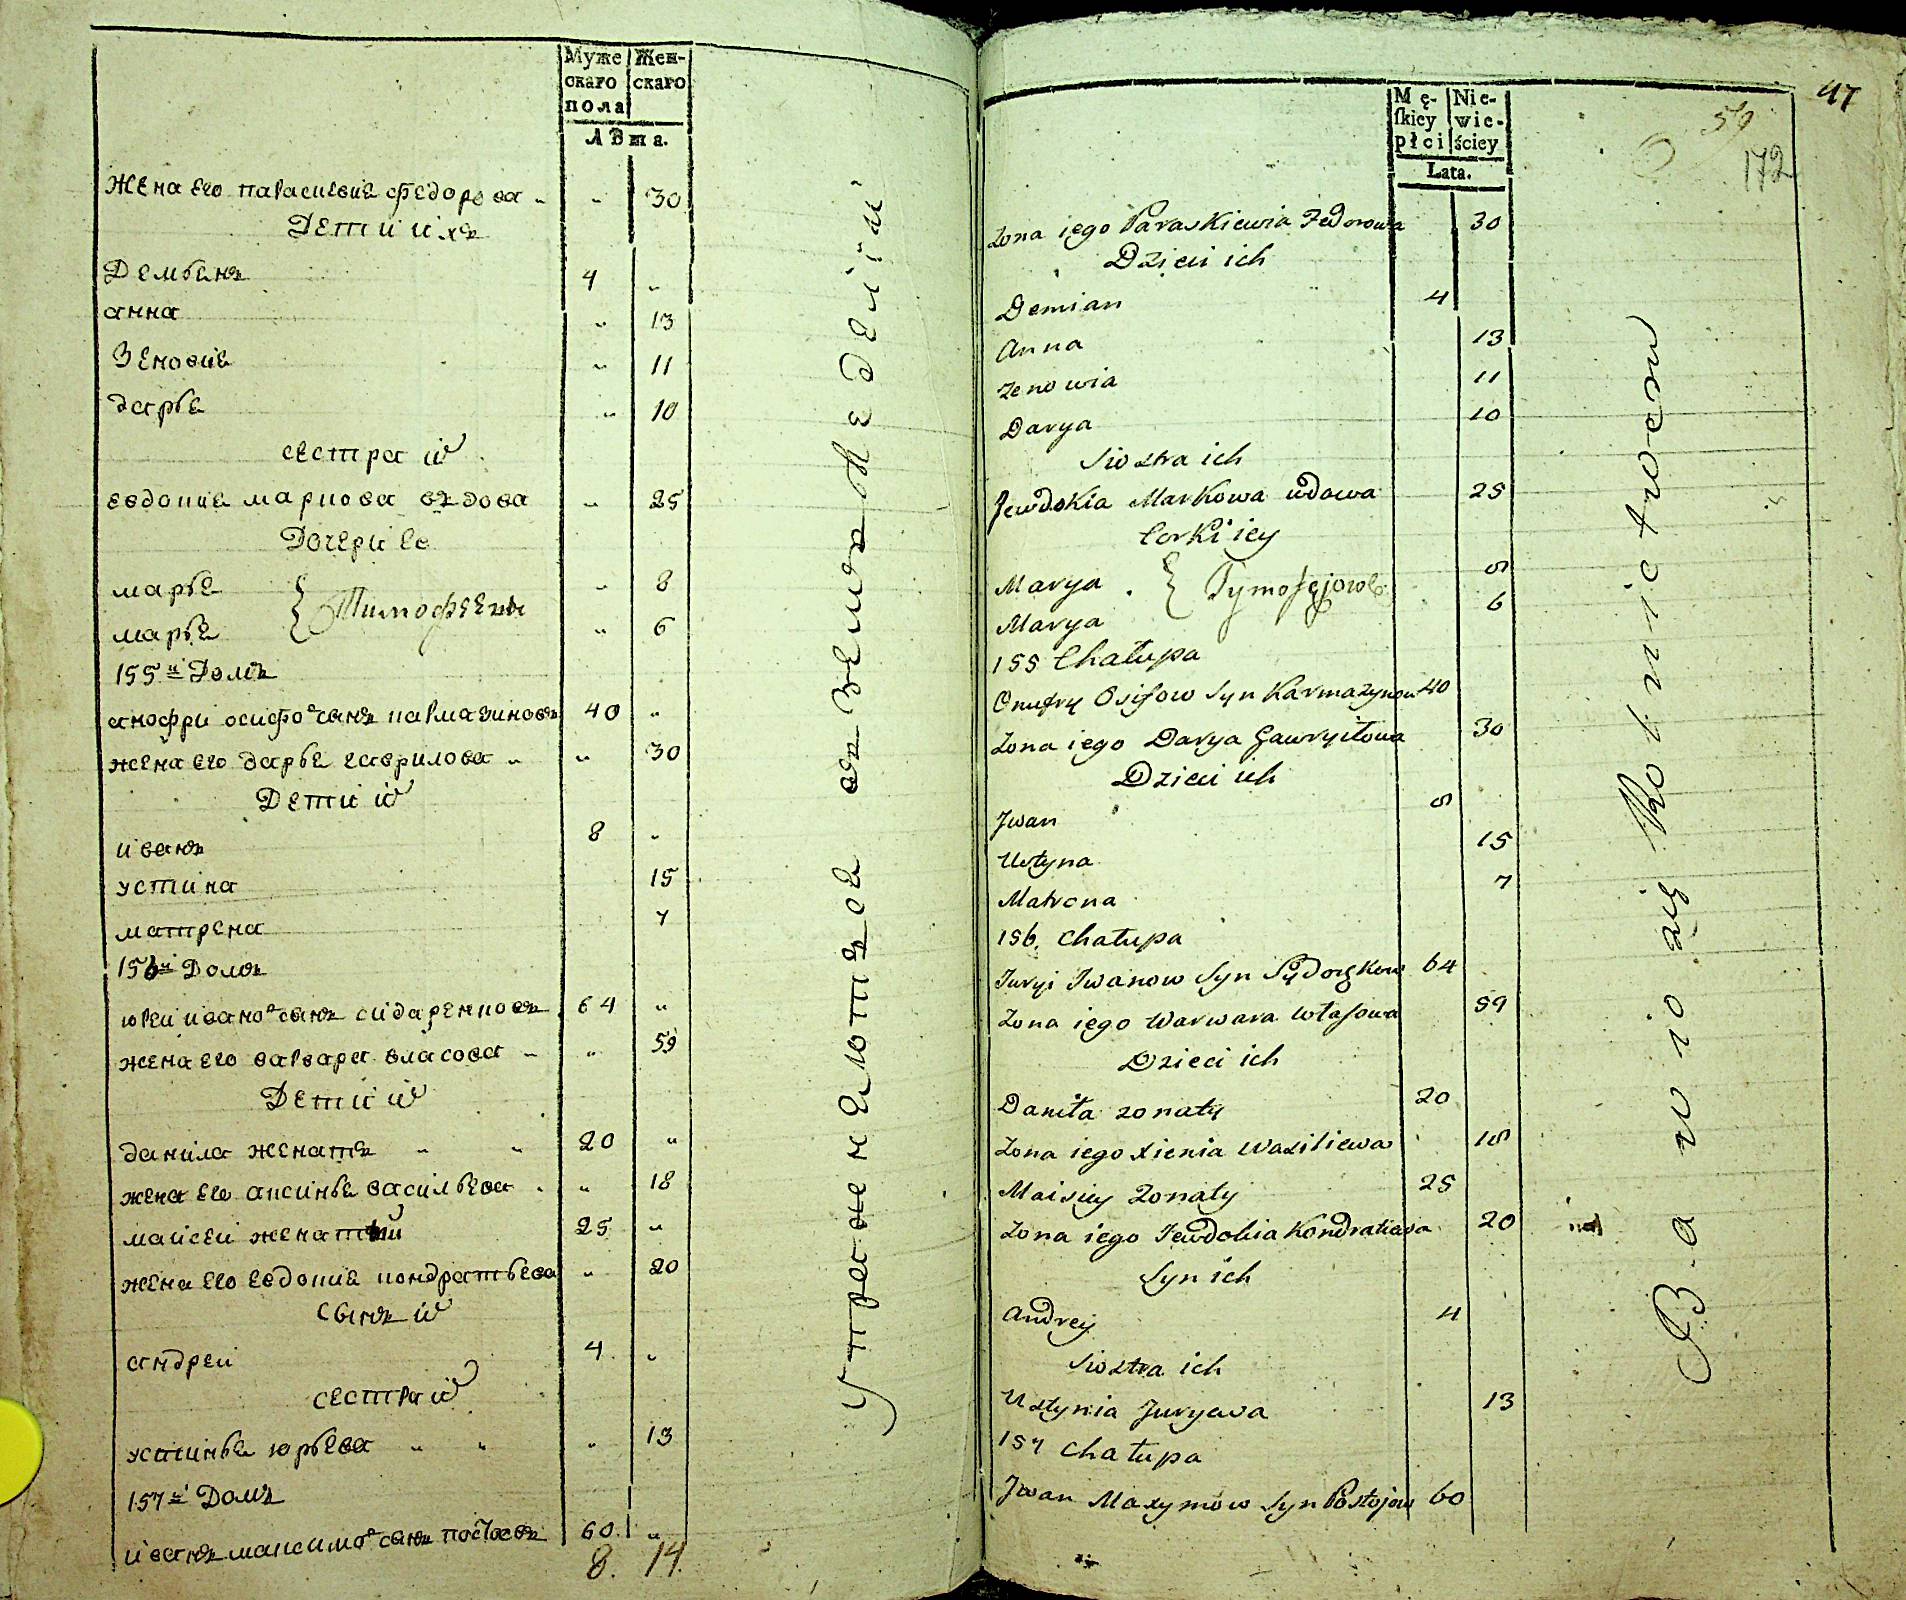 Муже
скаго
пола
Жен-
скаго
лѣта.
жена его параскевия федорова " " 30
Дети ихъ
Демьянъ 4 "
анна " 13
Зеновия " 11
дарья " 10
сестра их
евдокия маркова вдова " 25
Дочери ее
марья " 8
марья " 6
Тимофеевы
155й Домъ
анофри осифов сынъ кармазиновъ 40 "
жена его дарья гаврилова " " 30
Дети их
иванъ 8 "
устина 15
матрена 7
156й Домъ
юрей иванов сынъ сидаренковъ 64 "
жена его варвара власова " " 59
Дети их
данила женатъ " " 20 "
жена его аксинья васильева " " 18
майсей женатый 25 "
жена его евдокия кондратьева " 20
сынъ их
андрей 4 "
сестра их
устинья юрьева " " " 13
157й Домъ
иванъ максимов сынъ постоевъ 60 "
8. 14.
Упражняются въ земледелии
47
59
172
Mę-
skiey
płci
Nie-
wie-
ściey
Lata.
Zona iego Paraskiewia Fedorowa 30
Dzieci ich
Demian 4
Anna 13
Zenowia 11
Darya 10
Siostra ich
Jewdokia Markowa wdowa 25
Corki iey
Marya . 8
Marya 6
155 Chałupa
Onufry Osifow Syn Karmazynow 40
Zona iego Darya Gawryłowa 30
Dzieci ich
Jwan 8
Ustyna 15
Matrona 7
156. Chałupa
Juryi Jwanow Syn 64
Zona iego Warwara Własowa 59
Dzieci ich
Daniła zonaty 20
Zona iego Xienia Wasiliewa 18
Maisiey Zonaty 25
Zona iego Jewdokia Kondratiewa 20
Syn ich
Andrey 4
Siostra ich
Ustynia Juryewa 13
157 Chałupa
Jwan Maxymow Syn Postojow 60
Bawio się Rolnictwem